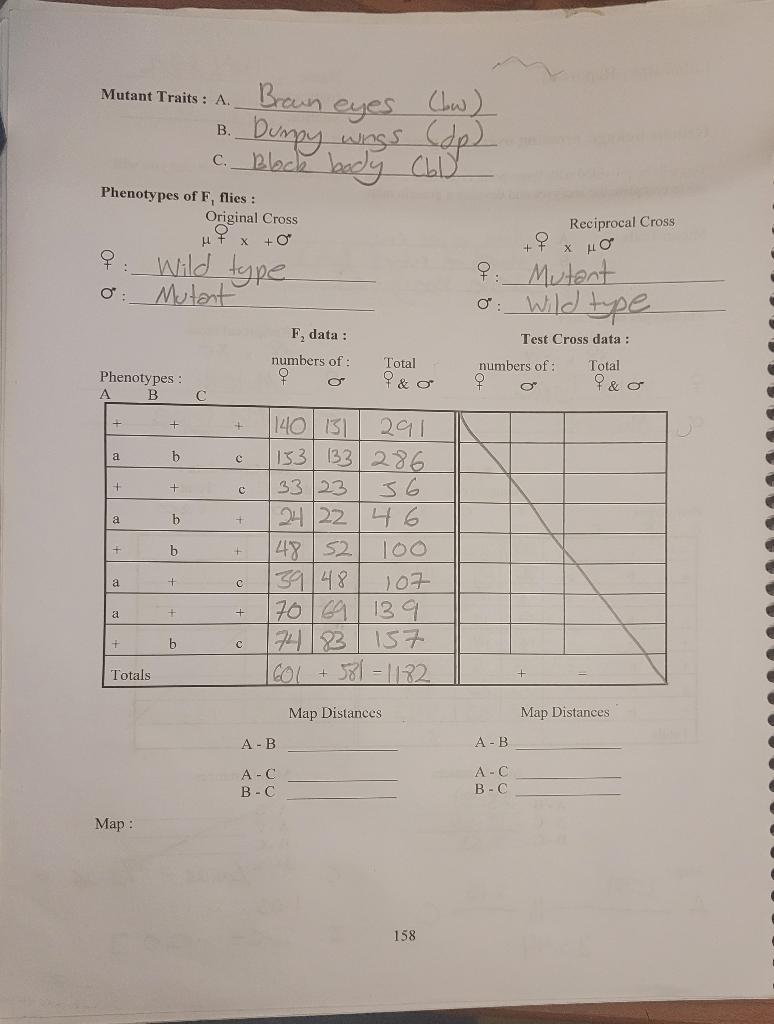 Mutant Traits : A. Brown eyes (bw)
B. Dumpy wings (dp)
C. Black body (bl)
Phenotypes of F₁ flies :
Original Cross
Reciprocal Cross
μ ♀ x + ♂
+ ♀ x μ ♂
♀ : Wild type
♀ : Mutant
♂ : Mutant
♂ : Wild type
F₂ data :
Test Cross data :
numbers of : Total
numbers of : Total
Phenotypes : ♀ ♂ ♀ & ♂
♀ ♂ ♀ & ♂
A B C
+ + + 140 151 291
a b c 153 133 286
+ + c 33 23 56
a b + 24 22 46
+ b + 48 52 100
a + c 59 48 107
a + + 70 69 139
+ b c 74 83 157
Totals 601 + 581 = 1182 + =
Map Distances
Map Distances
A - B
A - B
A - C
A - C
B - C
B - C
Map :
158